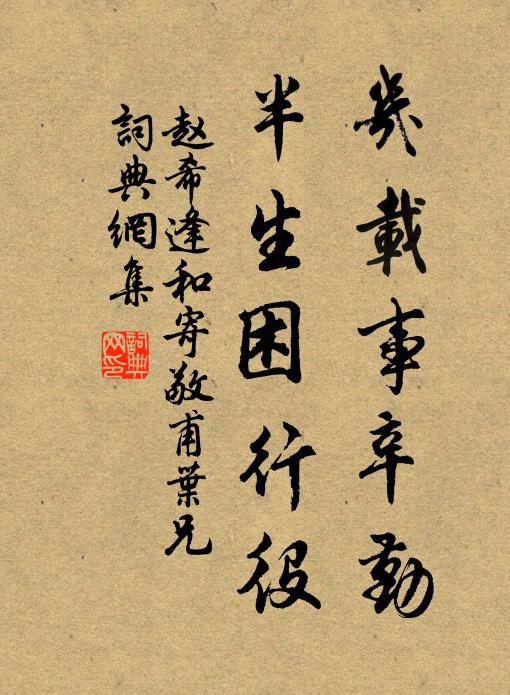 幾載事辛勤
半生困行役
赵希逢和寄敬甫葉兄
詞典網集
詞典網印